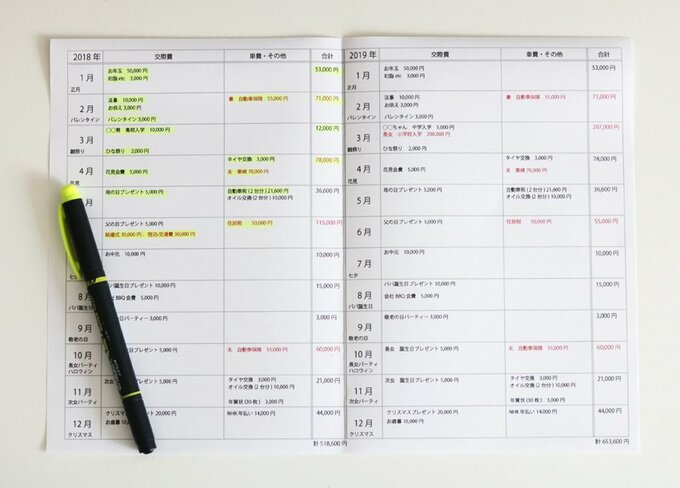 2018年 交際費 車費・その他 合計
1月 お年玉 50,000円 53,000円
初詣etc 3,000円
正月
2月 法事 10,000円 妻 自動車保険 55,000円 71,000円
お供え 3,000円
バレンタイン バレンタイン 3,000円
3月 〇〇君 高校入学 10,000円 12,000円
雛祭り ひな祭り 2,000円
4月 花見会費 5,000円 タイヤ交換 3,000円 78,000円
夫 車検 70,000円
花見
月 母の日プレゼント 5,000円 自動車税(2台分)21,600 36,600円
オイル交換(2台分)10,000円
父の日プレゼント 5,000円 住民税 50,000円 115,000円
結婚式 30,000円、宿泊・交通費 30,000円
お中元 10,000円 10,000円
七夕
8月 パパ誕生日プレゼント 10,000円 15,000円
会社BBQ会費 5,000円
パパ誕生日
9月 日パーティー 3,000円 3,000円
敬老の日
10月 誕生日プレゼント 5,000円 夫 自動車保険 55,000円 60,000円
長女パーティ
ハロウィン
11月 次女 誕生日プレゼント 5,000円 タイヤ交換 3,000円 21,000円
オイル交換(2台分)10,000円
次女パーティ 年賀状(30枚) 3,000円
12月 クリスマスプレゼント 20,000円 NHK年払い 14,000円 44,000円
お歳暮 10,000円
クリスマス
計 518,600円
2019年 交際費 車費・その他 合計
1月 お年玉 50,000円 53,000円
初詣etc 3,000円
正月
2月 法事 10,000円 妻 自動車保険 55,000円 71,000円
お供え 3,000円
バレンタイン バレンタイン 3,000円
3月 〇〇ちゃん 中学入学 5,000円 207,000円
長女 小学校入学 200,000円
雛祭り ひな祭り 2,000円
4月 花見会費 5,000円 タイヤ交換 3,000円 78,000円
夫 車検 70,000円
花見
5月 母の日プレゼント 5,000円 自動車税(2台分)21,600円 36,600円
オイル交換(2台分)10,000円
6月 父の日プレゼント 5,000円 住民税 50,000円 55,000円
7月 お中元 10,000円 10,000円
七夕
8月 パパ誕生日プレゼント 10,000円 15,000円
会社BBQ会費 5,000円
パパ誕生日
9月 敬老の日パーティー 3,000円 3,000円
敬老の日
10月 長女 誕生日プレゼント 5,000円 夫 自動車保険 55,000円 60,000円
長女パーティ
ハロウィン
11月 次女 誕生日プレゼント 5,000円 タイヤ交換 3,000円 21,000円
オイル交換(2台分)10,000円
次女パーティ 年賀状(30枚) 3,000円
12月 クリスマスプレゼント 20,000円 NHK年払い 14,000円 44,000円
お歳暮 10,000円
クリスマス
計 653,600円